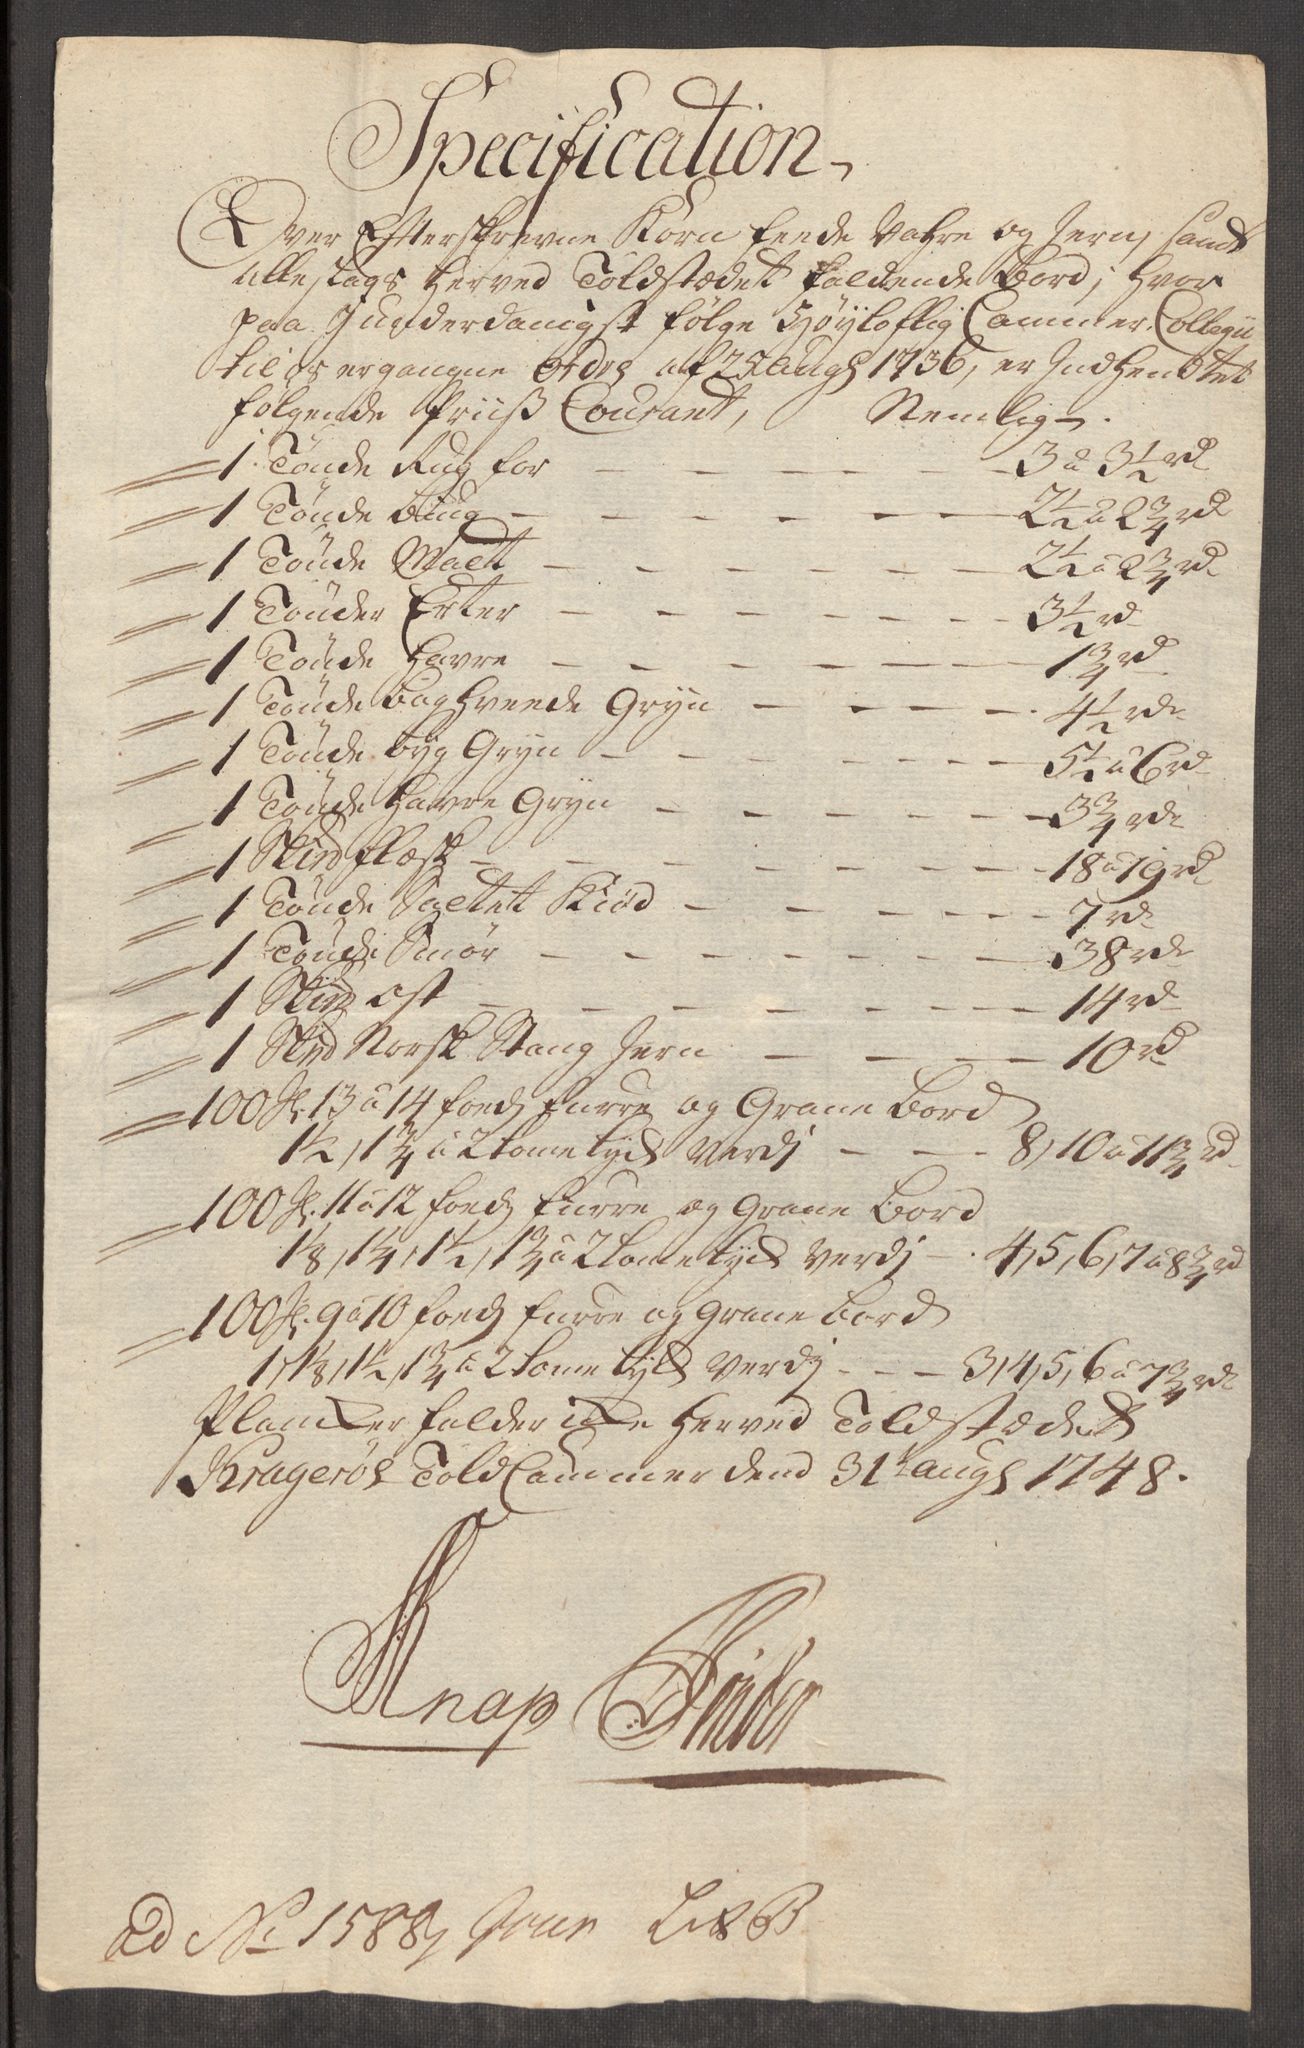 Specification
Over Efterskrevne Korn feede Vahre og Jern, samt
alleslags herved Toldstædet faldende Bord, hvor
paa Junderdanigst følge Høyloflig Cammer Collegii
til os ergangne Ordre af 25 Augs 1736, er Indhendtet
følgende Priiß Courant, Nemlig.
1 Tönde Rug for - 3 a 3 1/2 rd
1 Tönde biug - 2 1/2 a 2 3/4 rd
1 Tönde Malt - 2 1/2 a 2 3/4 rd
1 Tönder Erter - 3 1/2 rd
1 Tönde Havre - 1 3/4 rd
1 Tönde boghveede Gryn - 4 1/2 rd
1 Tönde byg Gryn - 5 1/2 a 6 rd
1 Tönde Havre Gryn - 3 3/4 rd
1 Skpd flesk - 18 a 19 rd
1 Tönde Saltet Kiød - 7 rd
1 Tönde Smør - 38 rd
1 Skpd Ost - 14 rd
1 Skpd Norsk Stang Jern - 10 rd
100 st. 13 a 14 foeds furre og Grane Bord
1 1/2, 1 3/4 a 2 tome tyck Verdj - 8, 10 a 11 3/4 rd
100 st. 11 a 12 foeds furre og Grane Bord
1 1/8, 1 1/4, 1 1/2, 1 3/4 a 2 tome tyck Verdj - 4, 5, 6, 7 a 8 3/4 rd
100 st. 9 a 10 foeds furre og Grane bord
1, 1 1/8, 1 1/2, 1 3/4 a 2 tome tyck Verdj - 3, 4, 5, 6 a 7 3/4 rd
Plancker falder icke herved Toldstædet
Kragerøe Told Cammer dend 31t augs 1748.
Knap
ad No 1588 Jour B